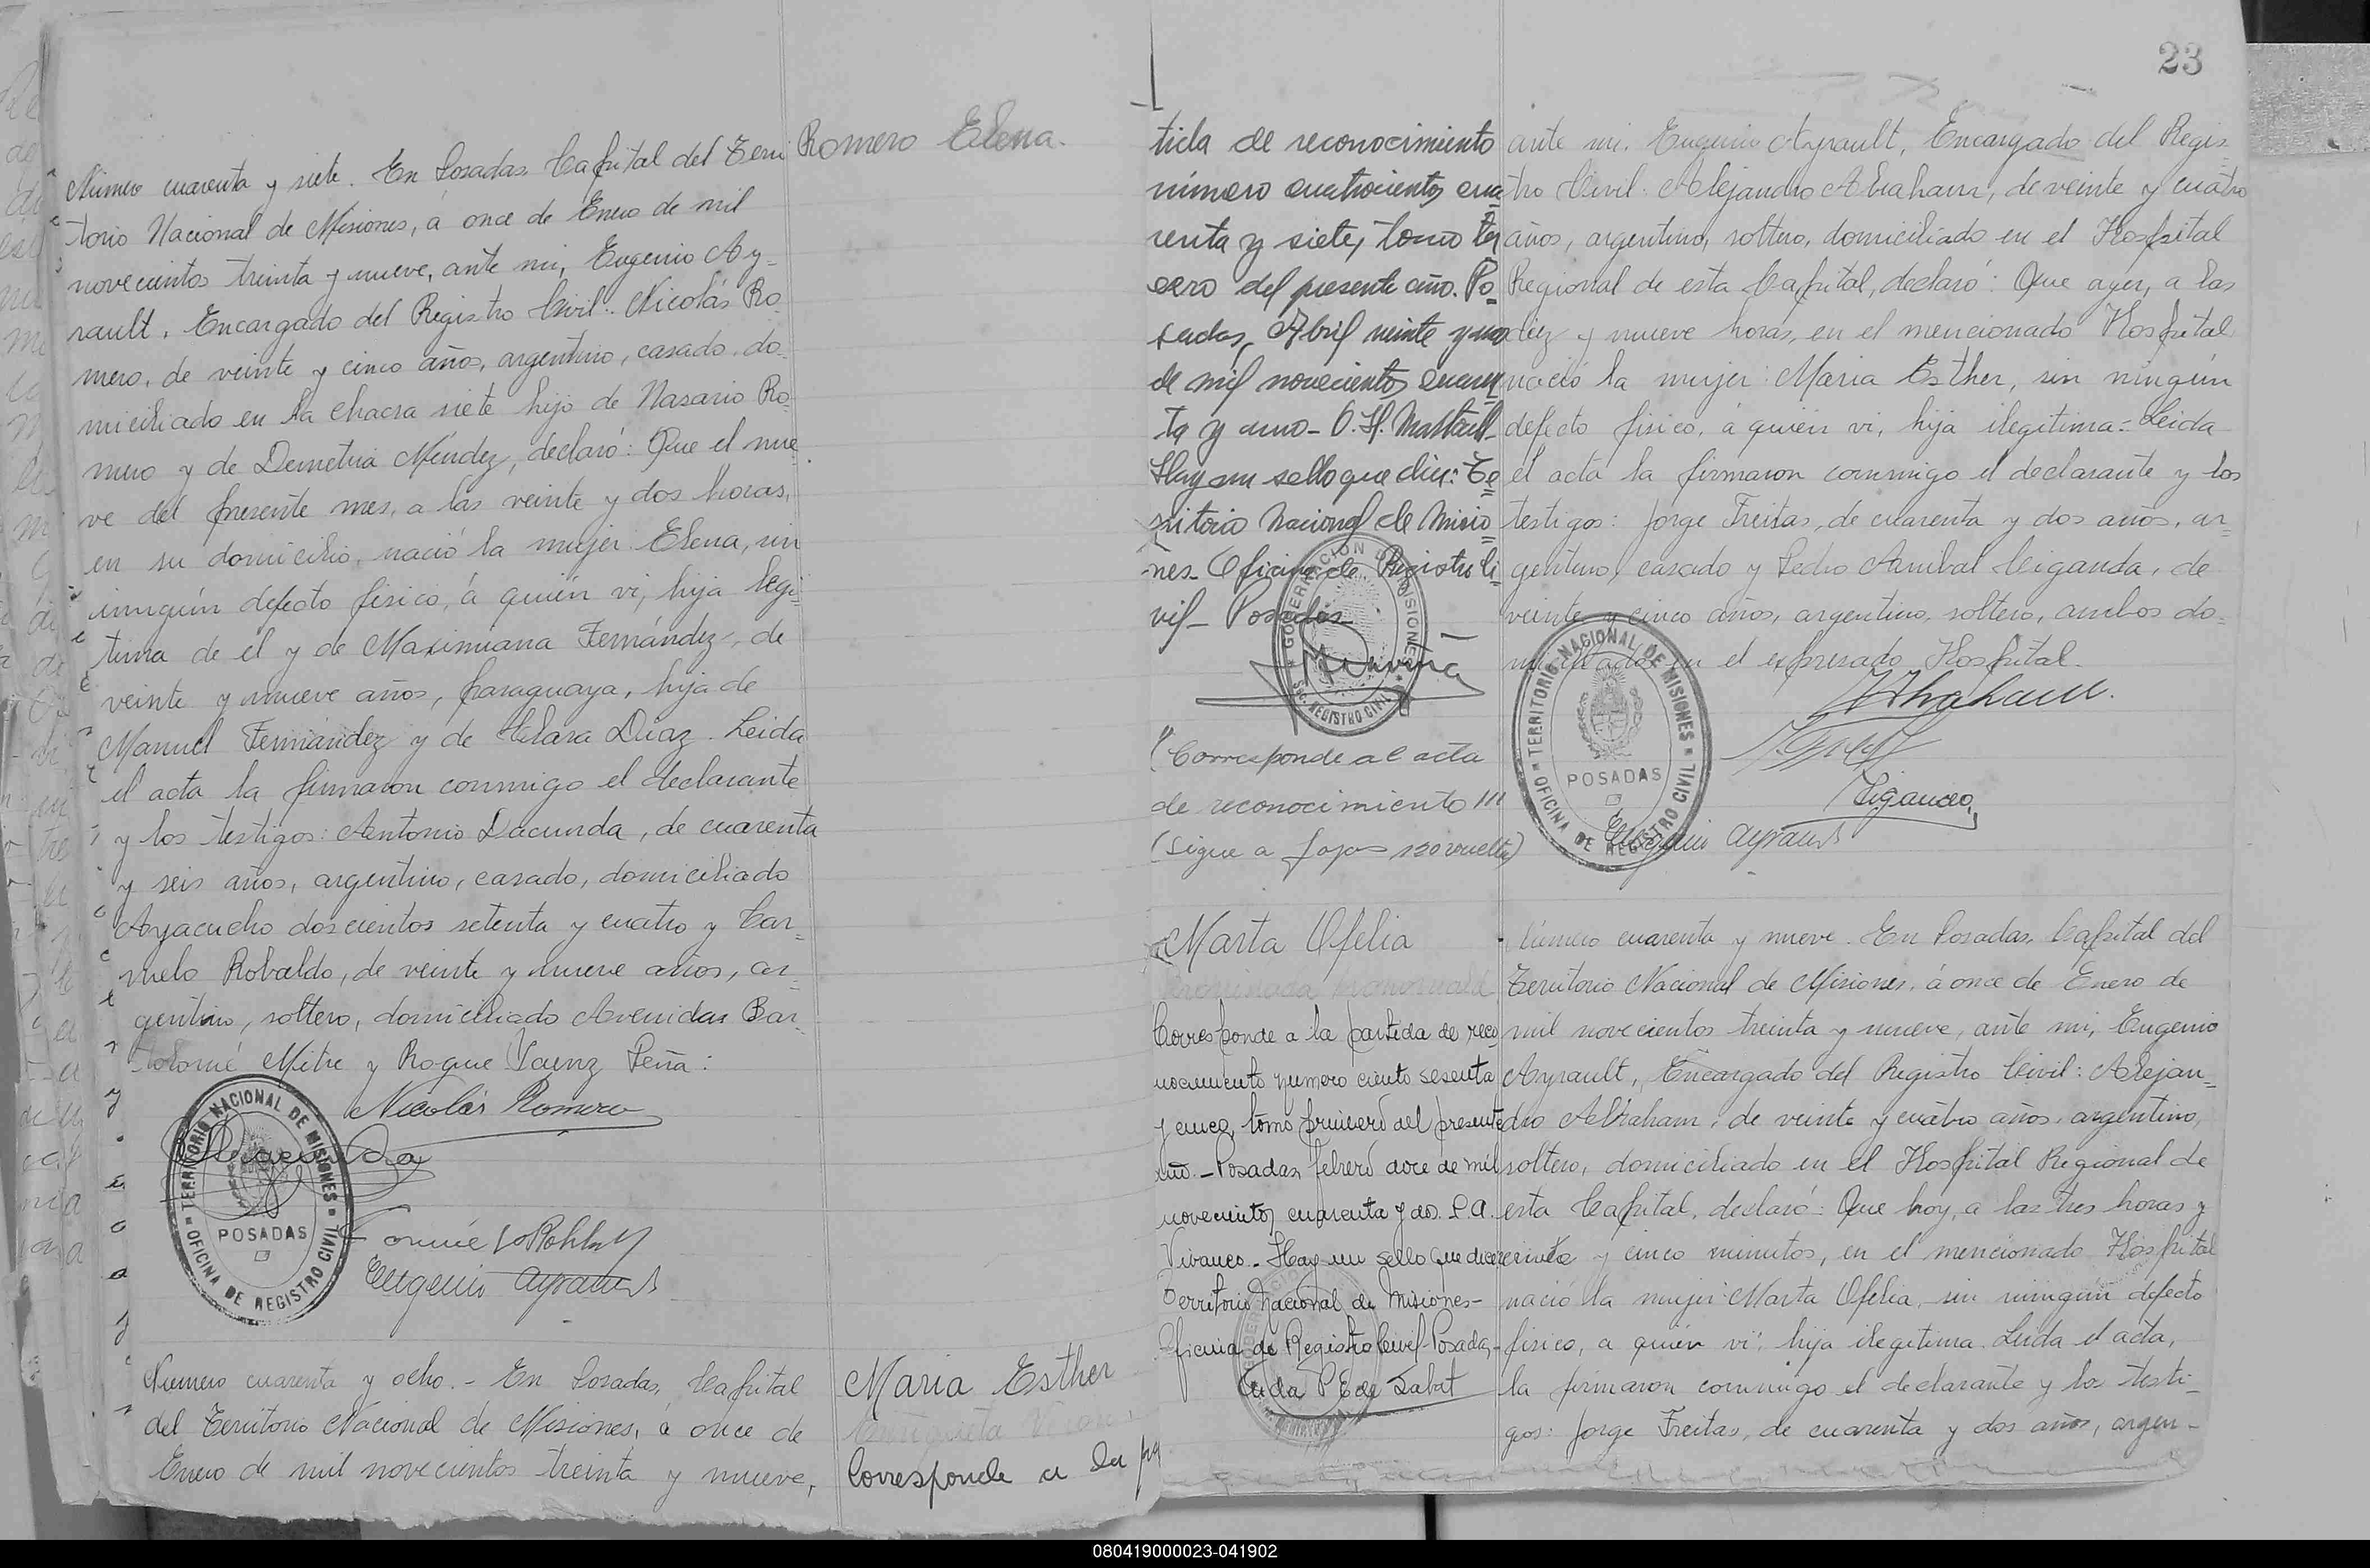 Número cuarenta y siete. En Posadas, Capital del Terri
torio Nacional de Misiones, á once de Enero de mil
novecientos treinta y nueve, ante mi, Eugenio Ay-
rault, Encargado del Registro Civil: Nicolás Ro-
mero, de veinte y cinco años, argentino, casado, do-
miciliado en la chacra siete hijo de Nasario Ro-
mero y de Demetria Méndez, declaró: Que el nue
ve del presente mes, a las veinte y dos horas,
en su domicilio, nació la mujer Elena, sin
ningún defecto físico, á quién vi, hija legi-
tima de él y de Maximiana Fernández, de
veinte y nueve años, paraguaya, hija de
Manuel Fernández y de Clara Díaz. Leida
el acta la firmaron conmigo el declarante
y los testigos: Antonio Lacunda, de cuarenta
y seis años, argentino, casado, domiciliado
Ayacucho doscientos setenta y cuatro y Car-
melo Robaldo, de veinte y nueve años, ar-
gentino, soltero, domiciliado Avenidas Bar-
tolomé Mitre y Roque Saenz Peña:
Nicolás Romero
TERRITORIO NACIONAL DE MISIONES
POSADAS
OFICINA DE REGISTRO CIVIL
Eugenio Ayrault
Romero Elena.
Número cuarenta y ocho.- En Posadas, Capital
del Territorio Nacional de Misiones, á once de
Enero de mil novecientos treinta y nueve,
Maria Esther
Corresponde a la par
23
tida de reconocimiento
número cuatrocientos cua
renta y siete, tomo ter
cero del presente año. Po-
sadas, Abril veinte y uno
de mil novecientos cuaren
ta y uno-
Hay un sello que dice: Te
rritorio Nacional de Misio
nes- Oficina de Registro Ci
vil- Posadas
GOBERNACIÓN DE MISIONES
SEC. REGISTRO CIVIL
(Corresponde al acta
de reconocimiento
(sigue a fojas 120 vuelta)
ante mi, Eugenio Ayrault, Encargado del Regis-
tro Civil: Alejandro Abraham, de veinte y cuatro
años, argentino, soltero, domiciliado en el Hospital
Regional de esta Capital, declaró: Que ayer, a las
diez y nueve horas, en el mencionado Hospital
nació la mujer: Maria Esther, sin ningún
defecto físico, á quién vi, hija ilegitima= Leida
el acta la firmaron conmigo el declarante y los
testigos: Jorge Freitas, de cuarenta y dos años, ar-
gentino, casado y Pedro Anibal Ciganda, de
veinte y cinco años, argentino, soltero, ambos do-
miciliados en el expresado Hospital.
Abraham.
Ciganda
TERRITORIO NACIONAL DE MISIONES
POSADAS
OFICINA DE REGISTRO CIVIL
Eugenio Ayrault
Marta Ofelia
Corresponde a la partida de reco
nocimiento número ciento sesenta
y cinco, tomo primero del presente
año.- Posadas, febrero doce de mil
novecientos cuarenta y dos. P.A.
Vivanco.- Hay un sello que dice
Territorio Nacional de Misiones-
Oficina de Registro Civil- Posadas-
Número cuarenta y nueve. En Posadas, Capital del
Territorio Nacional de Misiones, á once de Enero de
mil novecientos treinta y nueve, ante mi, Eugenio
Ayrault, Encargado del Registro Civil: Alejan-
dro Abraham, de veinte y cuatro años, argentino,
soltero, domiciliado en el Hospital Regional de
esta Capital, declaró: Que hoy, a las tres horas y
y cinco minutos, en el mencionado Hospital
nació la mujer: Marta Ofelia, sin ningún defecto
físico, a quién vi, hija ilegitima. Leida el acta,
la firmaron conmigo el declarante y los testi-
gos: Jorge Freitas, de cuarenta y dos años, argen-
080419000023-041902